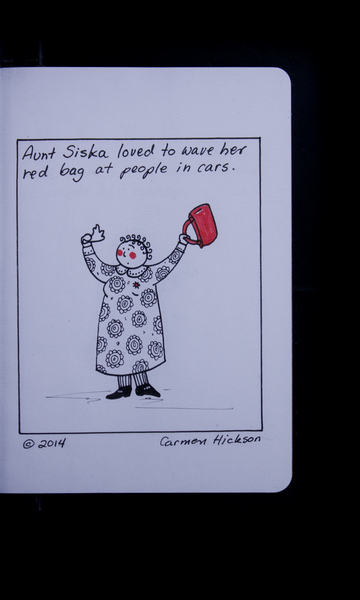 Aunt Siska loved to wave her
red bag at people in cars.
© 2014
Carmen Hickson